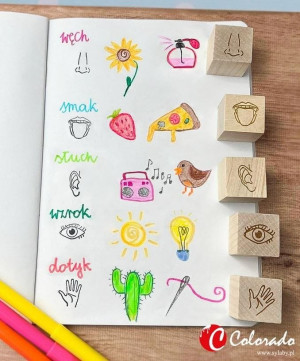 węch
smak
słuch
wzrok
dotyk
Colorado
www.sylaby.pl